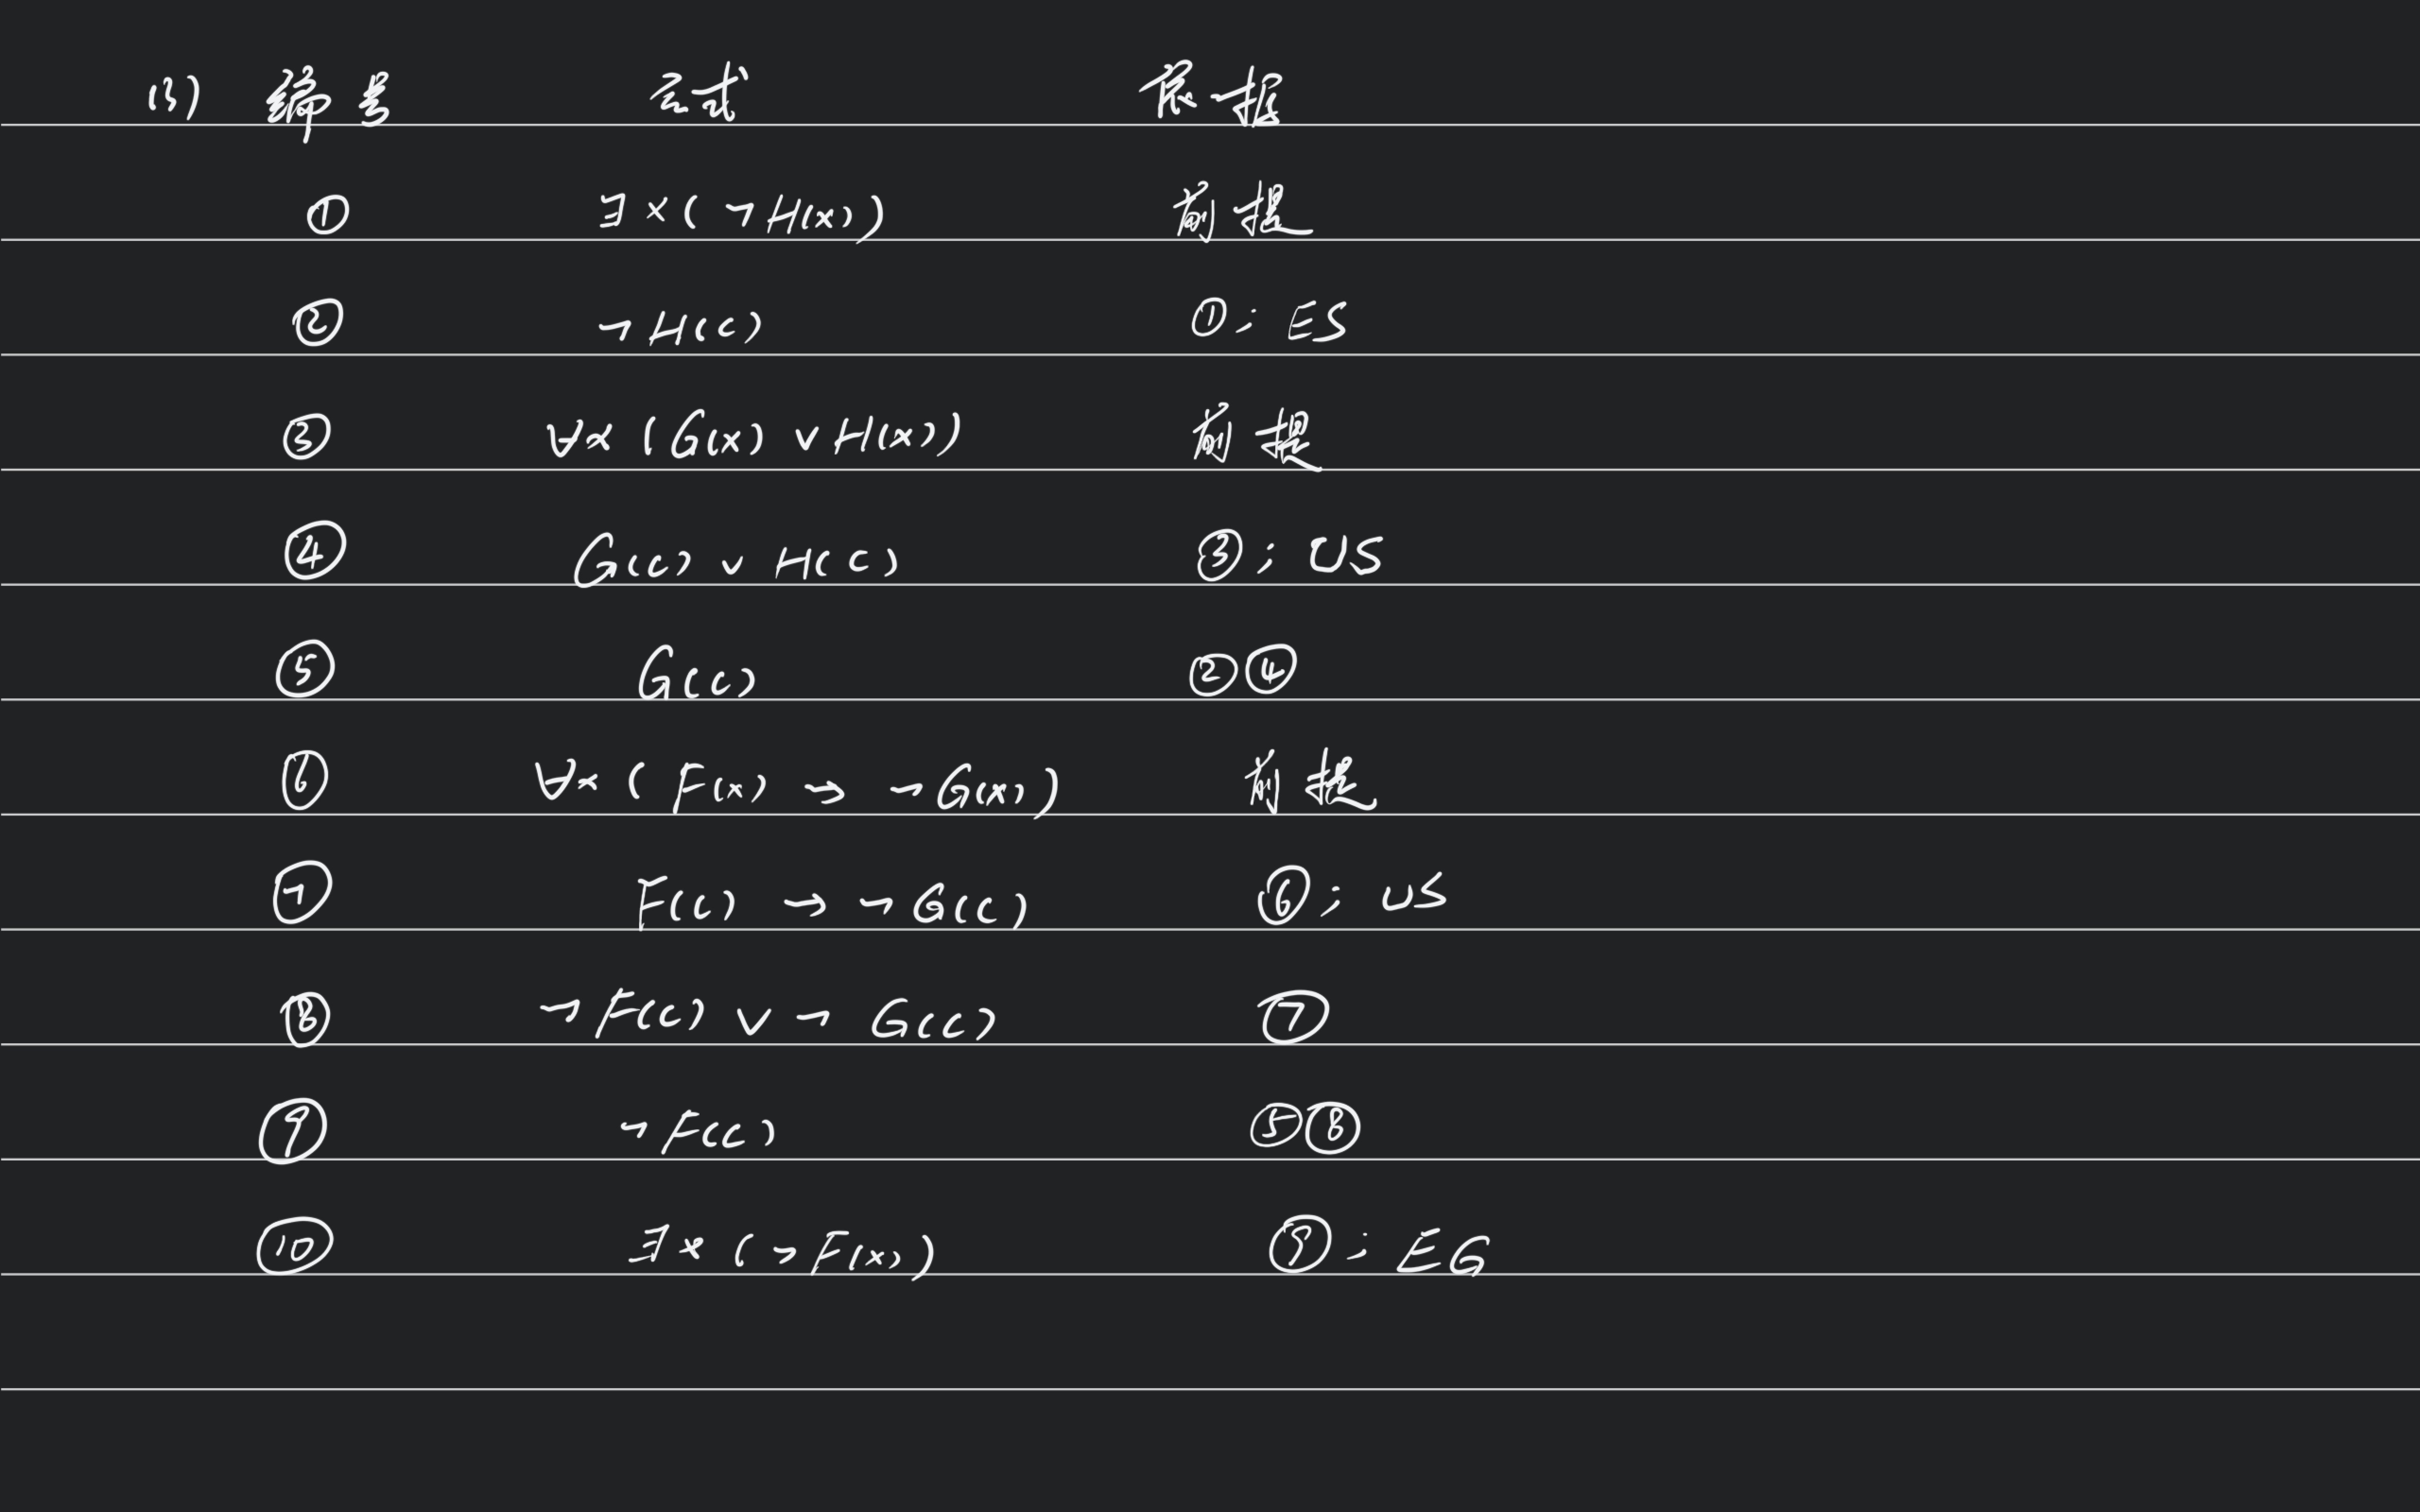 (3) 编号 公式 依据
① ∃x(¬H(x)) 前提
② ¬H(c) ①; ES
③ ∀x(G(x)∨H(x)) 前提
④ G(c)∨H(c) ③; US
⑤ G(c) ②④
⑥ ∀x(F(x)→¬G(x)) 前提
⑦ F(c)→¬G(c) ⑥; US
⑧ ¬F(c)∨¬G(c) ⑦
⑨ ¬F(c) ⑤⑧
⑩ ∃x(¬F(x)) ⑨; EG